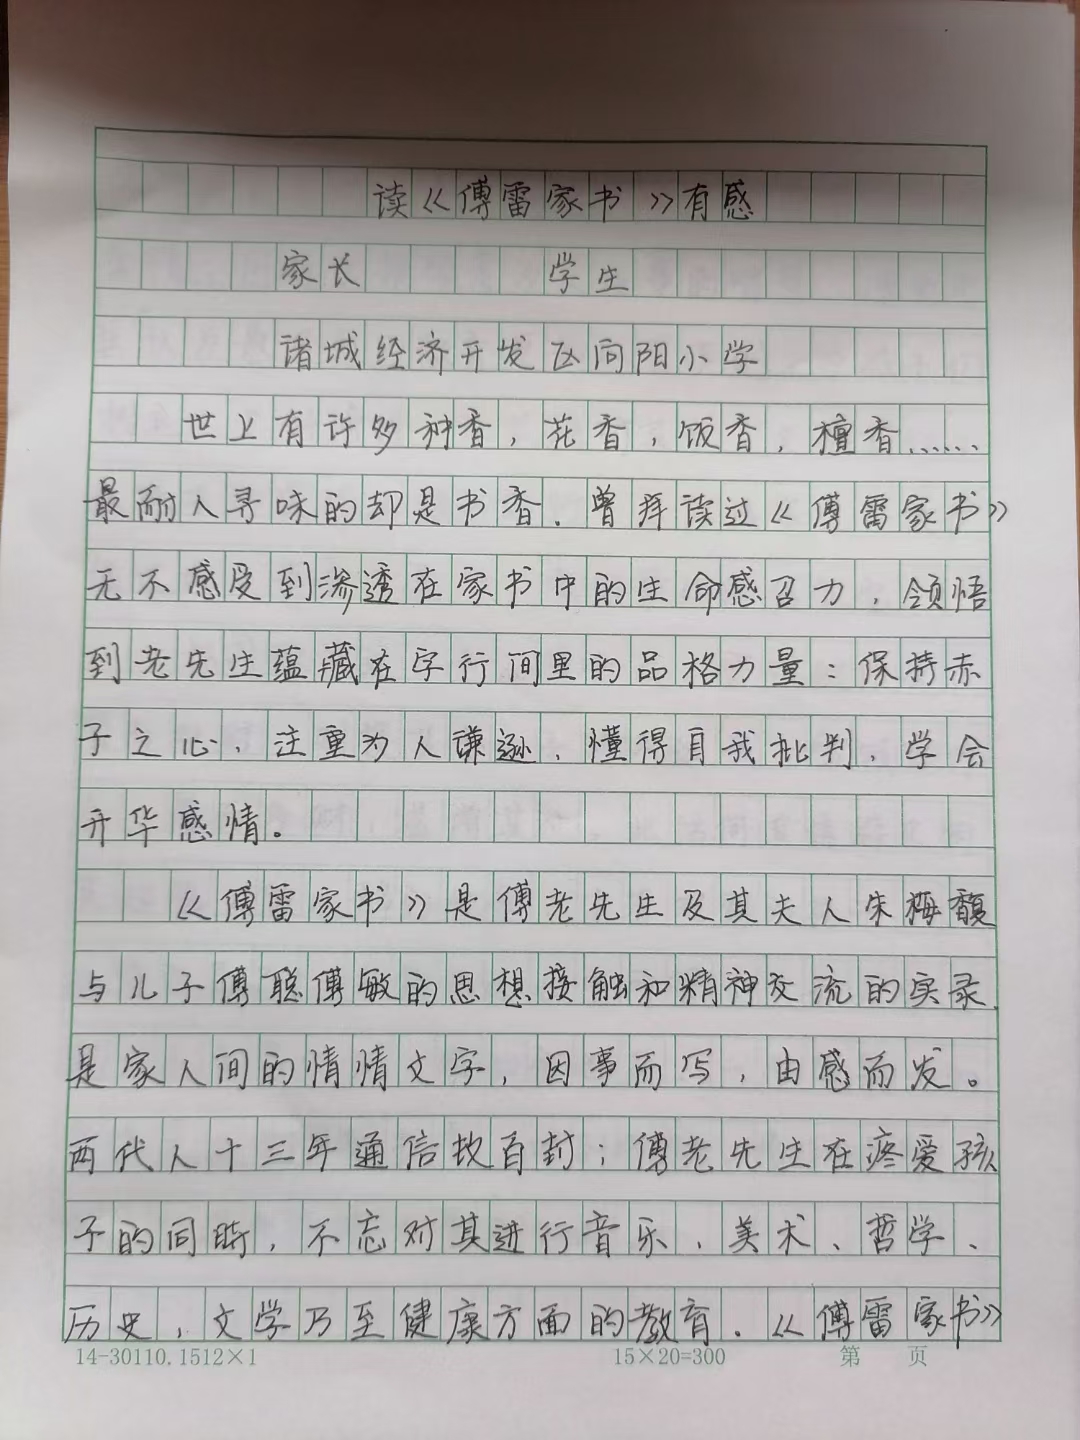 读《傅雷家书》有感
家长 学生
诸城经济开发区向阳小学
世上有许多种香，花香，饭香，檀香……
最耐人寻味的却是书香．曾拜读过《傅雷家书》
无不感受到渗透在家书中的生命感召力，领悟
到老先生蕴藏在字行间里的品格力量：保持赤
子之心、注重为人谦逊、懂得自我批判，学会
升华感情。
《傅雷家书》是傅老先生及其夫人朱梅馥
与儿子傅聪傅敏的思想接触和精神交流的实录，
是家人间的情情文字，因事而写，由感而发。
两代人十三年通信故百封；傅老先生在疼爱孩
子的同时，不忘对其进行音乐、美术、哲学、
历史、文学乃至健康方面的教育．《傅雷家书》
14-30110.1512×1 15×20=300 第 页